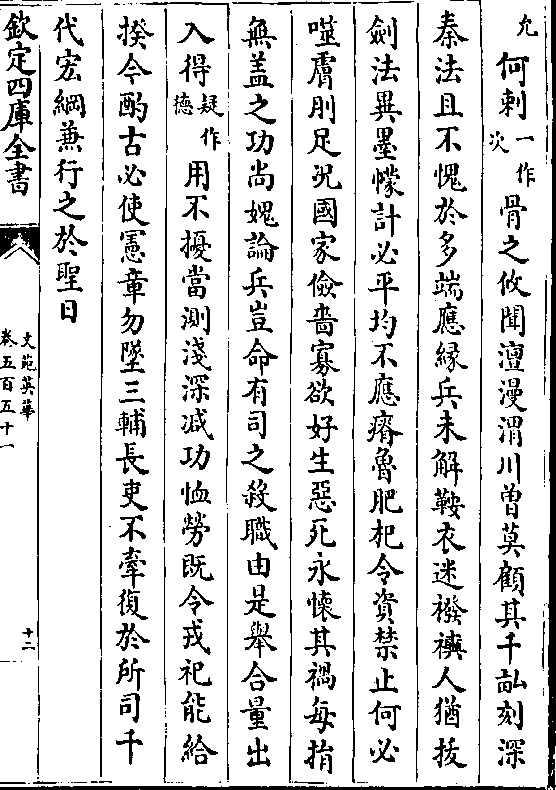 允何刺一作次骨之攸聞澶漫渭川曽莫顧其千畝刻深
秦法且不愧於多端應縁兵未解鞍衣迷襏襫人猶拔
劍法異墨幪計必平均不應瘠魯肥杞令資禁止何必
噬膚刖足況國家儉嗇寡欲好生惡死永懐其禍毎指
無盖之功尚媿論兵豈命有司之殺職由是舉合量出
入得疑作德用不擾當測淺深減功恤勞既令戎祀能給
揆今酌古必使憲章勿墜三輔長吏不牽復於所司千
代宏綱兼行之於聖日
欽定四庫全書
文苑英華
卷五百五十一
十二